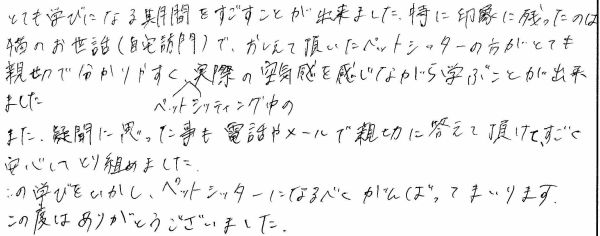 とても学びになる期間をすごすことが出来ました。特に印象に残ったのは
猫のお世話(自宅訪問)で、おしえて頂いたペットシッターの方がとても
親切で分かりやすく、実際の空気感を感じながら学ぶことが出来
ました
ペットシッティング中の
また、疑問に思った事も電話やメールで親切に答えて頂けて、すごく
安心してとり組めました。
この学びをいかし、ペットシッターになるべくがんばってまいります。
この度はありがとうございました。